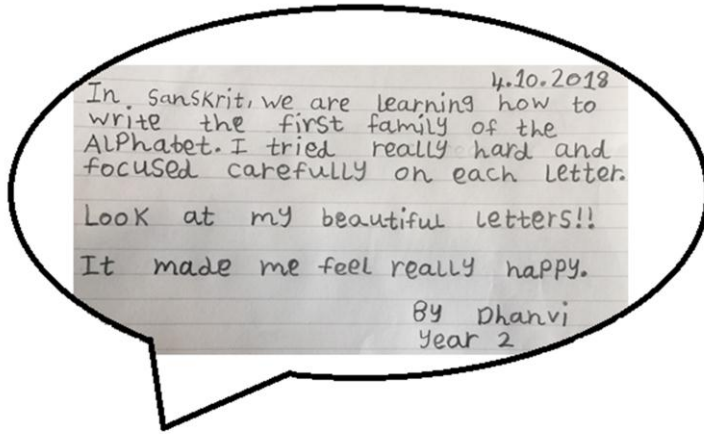 4.10.2018
In Sanskrit, we are learning how to
write the first family of the
Alphabet. I tried really hard and
focused carefully on each letter.
Look at my beautiful letters!!
It made me feel really happy.
By Dhanvi
Year 2